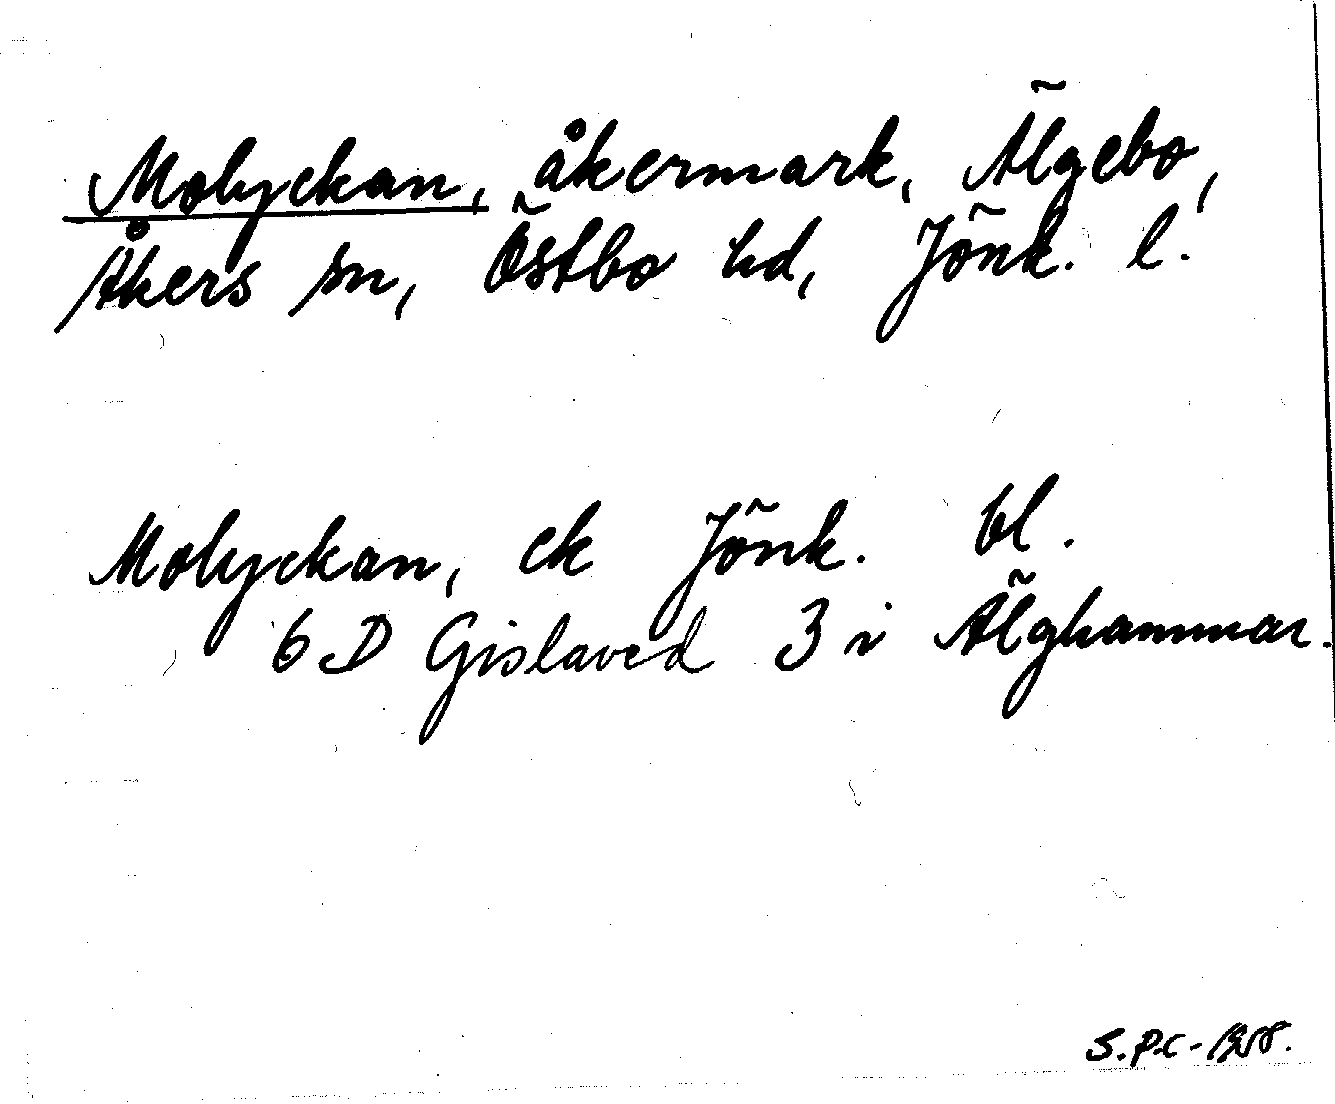 Molyckan, åkermark, Älgebo,
Åkers sn, Östbo hd, Jönk. l.
Molyckan, ek Jönk. bl.
6 D Gislaved 3 i Älghammar.
S.P.C-1958.